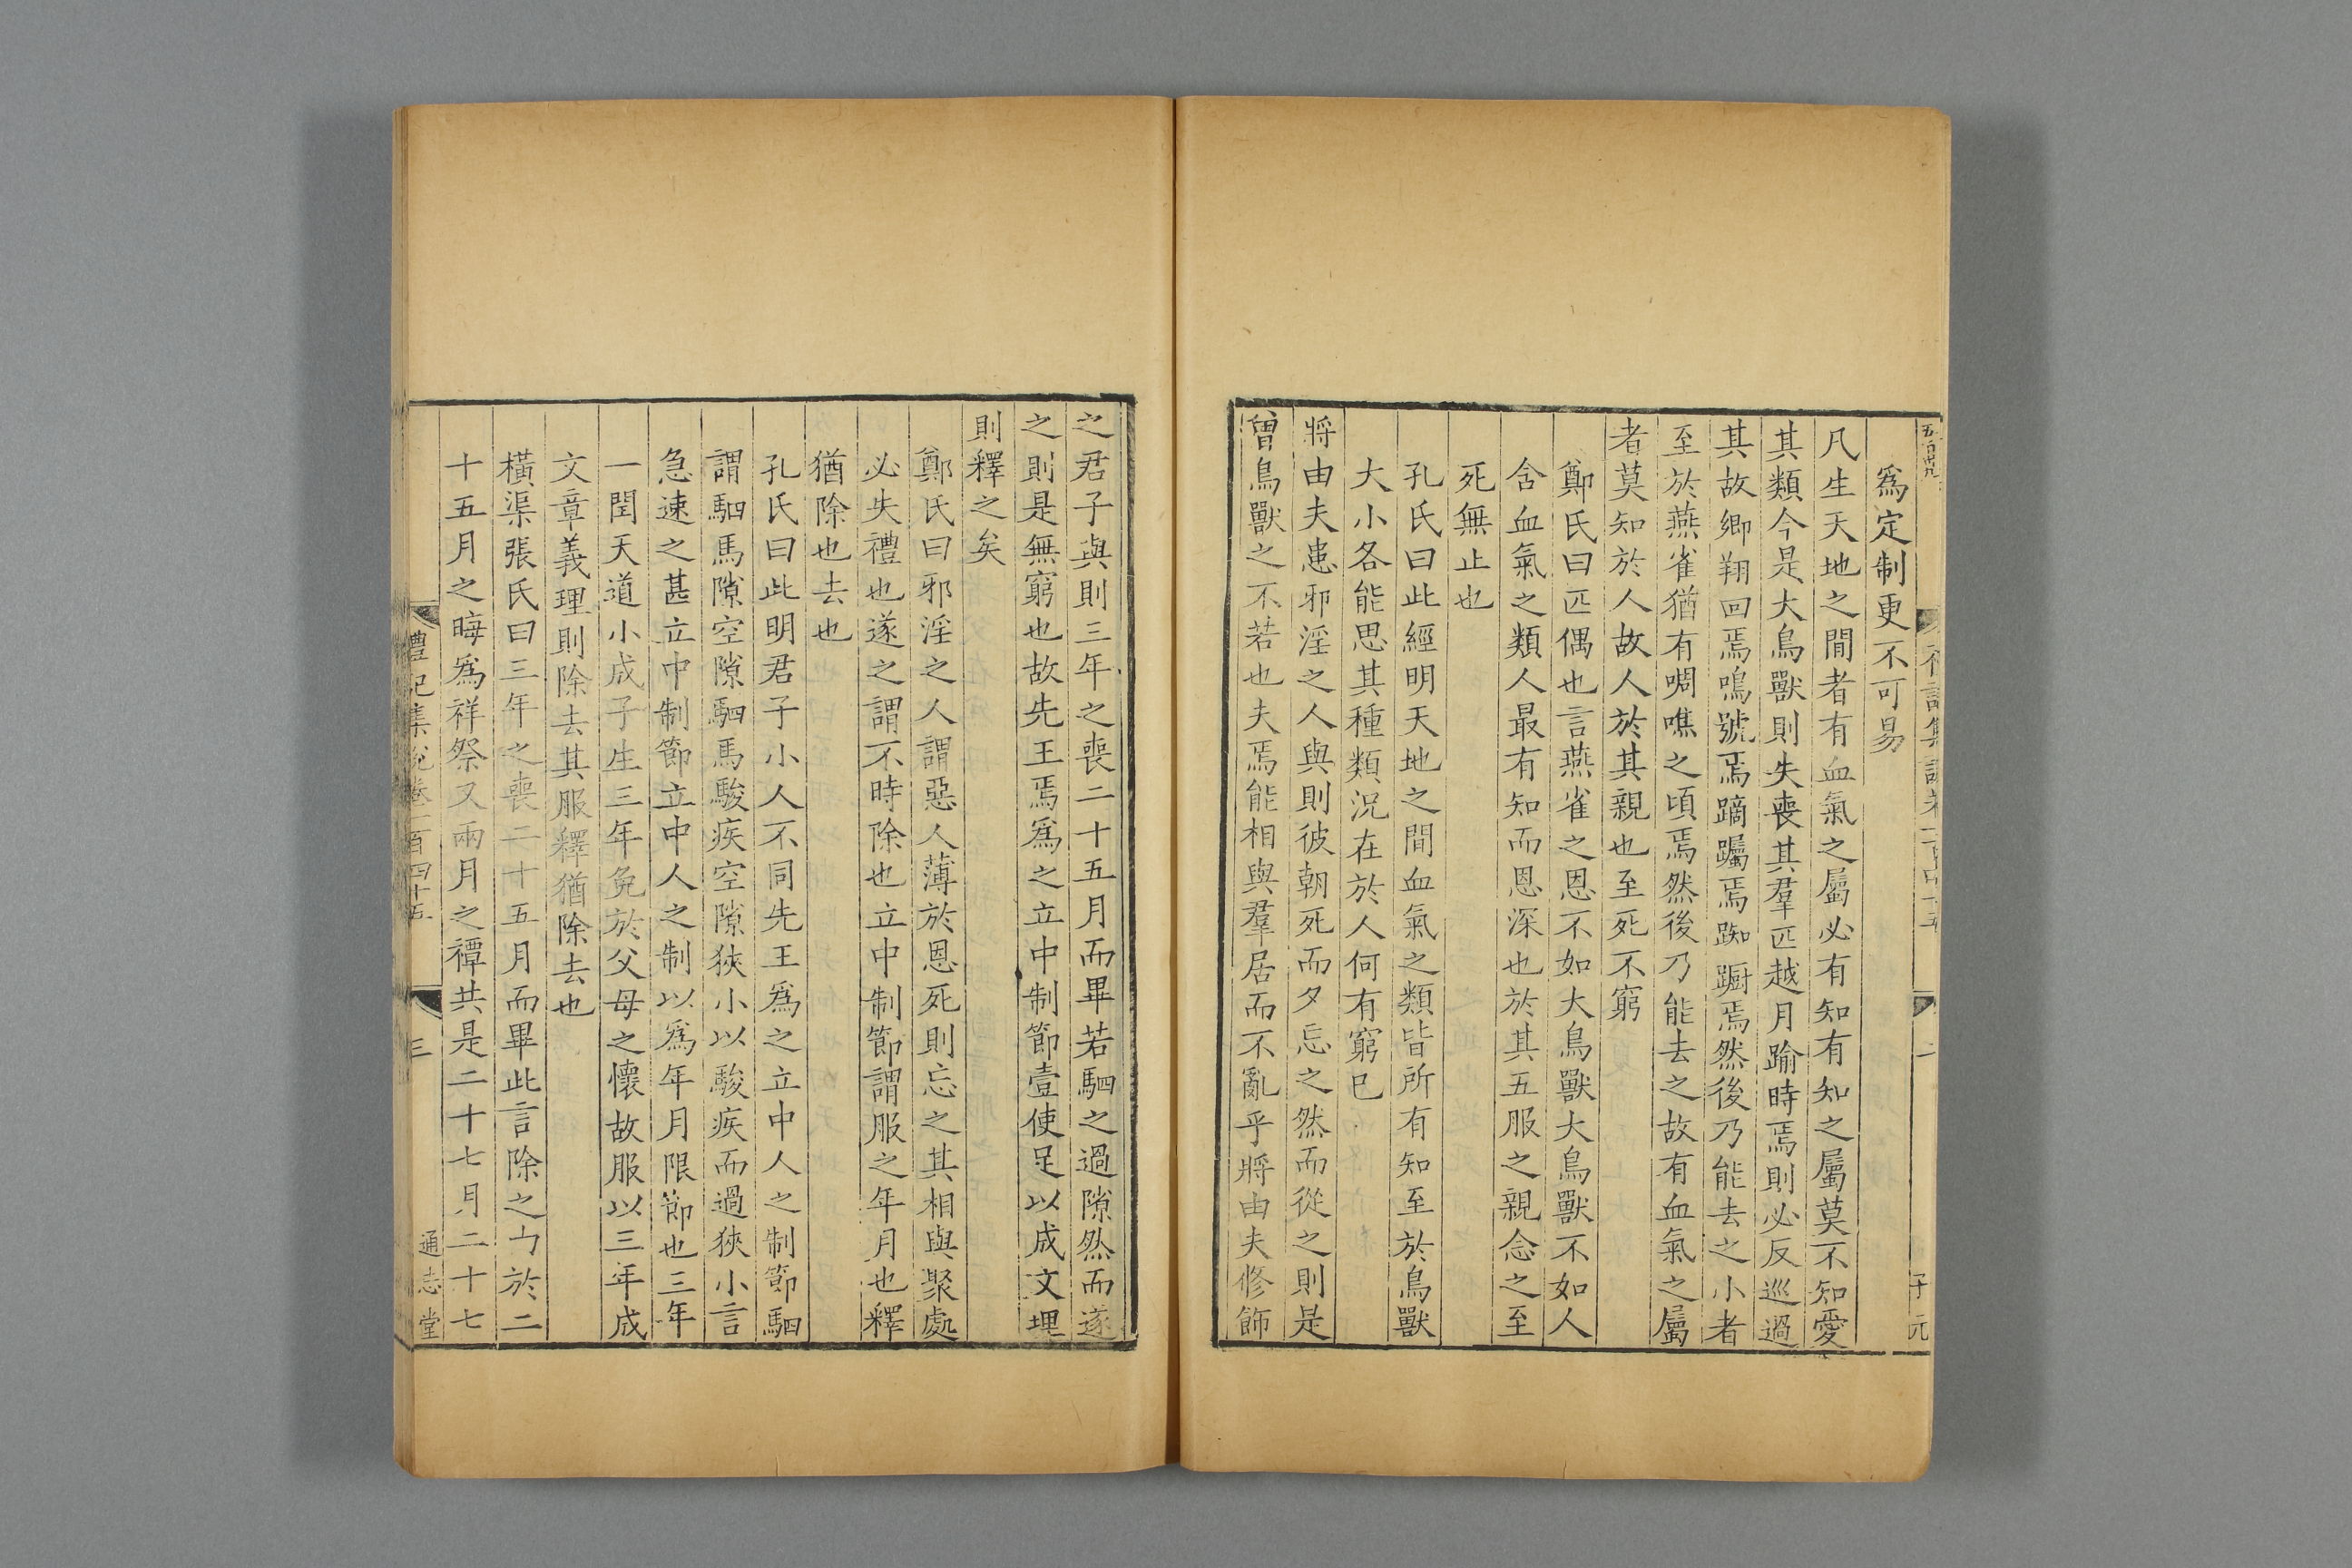 爲定制更不可易
凡生天地之間者有血氣之屬必有知有知之屬莫不知愛
其類今是大鳥獸則失喪其羣匹越月踰時焉則必反巡過
其故鄉翔回焉鳴號焉蹢躅焉踟躕焉然後乃能去之小者
至於燕雀猶有啁噍之頃焉然後乃能去之故有血氣之屬
者莫知於人故人於其親也至死不窮
鄭氏曰匹偶也言燕雀之恩不如大鳥獸大鳥獸不如人
含血氣之類人最有知而恩深也於其五服之親念之至
死無止也
孔氏曰此經明天地之間血氣之類皆所有知至於鳥獸
大小各能思其種類況在於人何有窮已
將由夫患邪淫之人與則彼朝死而夕忘之然而從之則是
曾鳥獸之不若也夫焉能相與羣居而不亂乎將由夫修飾
之君子與則三年之喪二十五月而畢若駟之過隙然而遂
之則是無窮也故先王焉爲之立中制節壹使足以成文理
則釋之矣
鄭氏曰邪淫之人謂惡人薄於恩死則忘之其相與聚處
必失禮也遂之謂不時除也立中制節謂服之年月也釋
猶除也去也
孔氏曰此明君子小人不同先王爲之立中人之制節駟
謂駟馬隙空隙駟馬駿疾空隙狹小以駿疾而過狹小言
急速之甚立中制節立中人之制以爲年月限節也三年
一閏天道小成子生三年免於父母之懷故服以三年成
文章義理則除去其服釋猶除去也
橫渠張氏曰三年之喪二十五月而畢此言除之㇉於二
十五月之晦爲祥祭又兩月之禫共是二十七月二十七
禮記集說卷一百四十五
三
通志堂